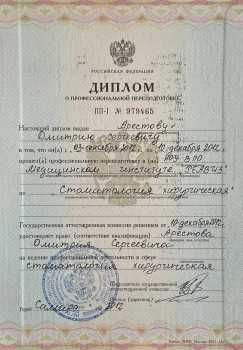 РОССИЙСКАЯ ФЕДЕРАЦИЯ
ДИПЛОМ
О ПРОФЕССИОНАЛЬНОЙ ПЕРЕПОДГОТОВКЕ
ПП-I № 979465
Настоящий диплом выдан Арестову
Дмитрию Сергеевичу
в том, что он(а) с 03 декабря 2012 10 декабря 2012
прошел(а) профессиональную переподготовку в (на) НОУ ВПО
Медицинском институте "РЕАВИЗ"
по Стоматология хирургическая
Государственная аттестационная комиссия решением от 10 декабря 2012
удостоверяет право (соответствие квалификации) Арестова
Дмитрия Сергеевича
на ведение профессиональной деятельности в сфере
стоматологии хирургическая
Председатель государственной
аттестационной комиссии
Город Самара 2012